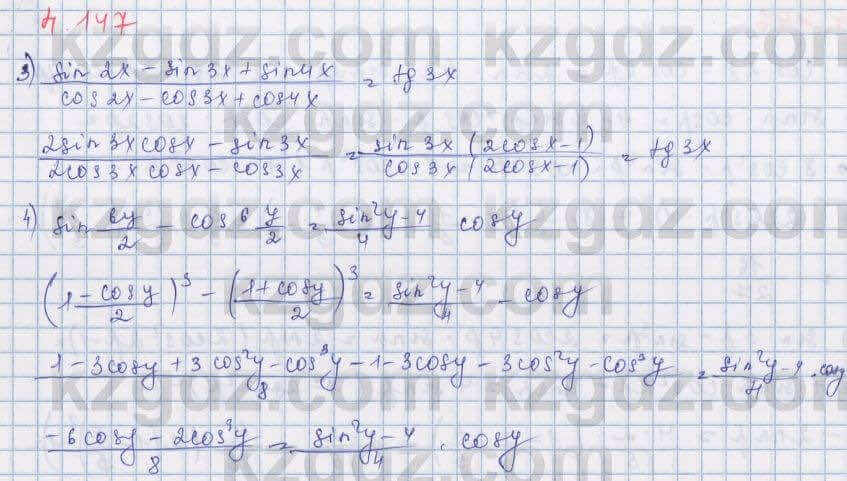 4.147
3) (sin 2x - sin 3x + sin 4x)/(cos 2x - cos 3x + cos 4x) = tg 3x
(2 sin 3x cos x - sin 3x)/(2 cos 3x cos x - cos 3x) = (sin 3x (2cos x - 1))/(cos 3x (2cos x - 1)) = tg 3x
4) sin 6y/2 - cos⁶ y/2 = (sin²y - 4)/4 cos y
(1 - cos y/2)³ - ((1 + cos y)/2)³ = (sin²y - 4)/4 - cos y
(1 - 3cos y + 3cos²y - cos³y - 1 - 3cos y - 3cos²y - cos³y)/8 = (sin²y - 4)/4 · cos y
(-6cos y - 2cos³y)/8 = (sin²y - 4)/4 · cos y
kzgdz.com